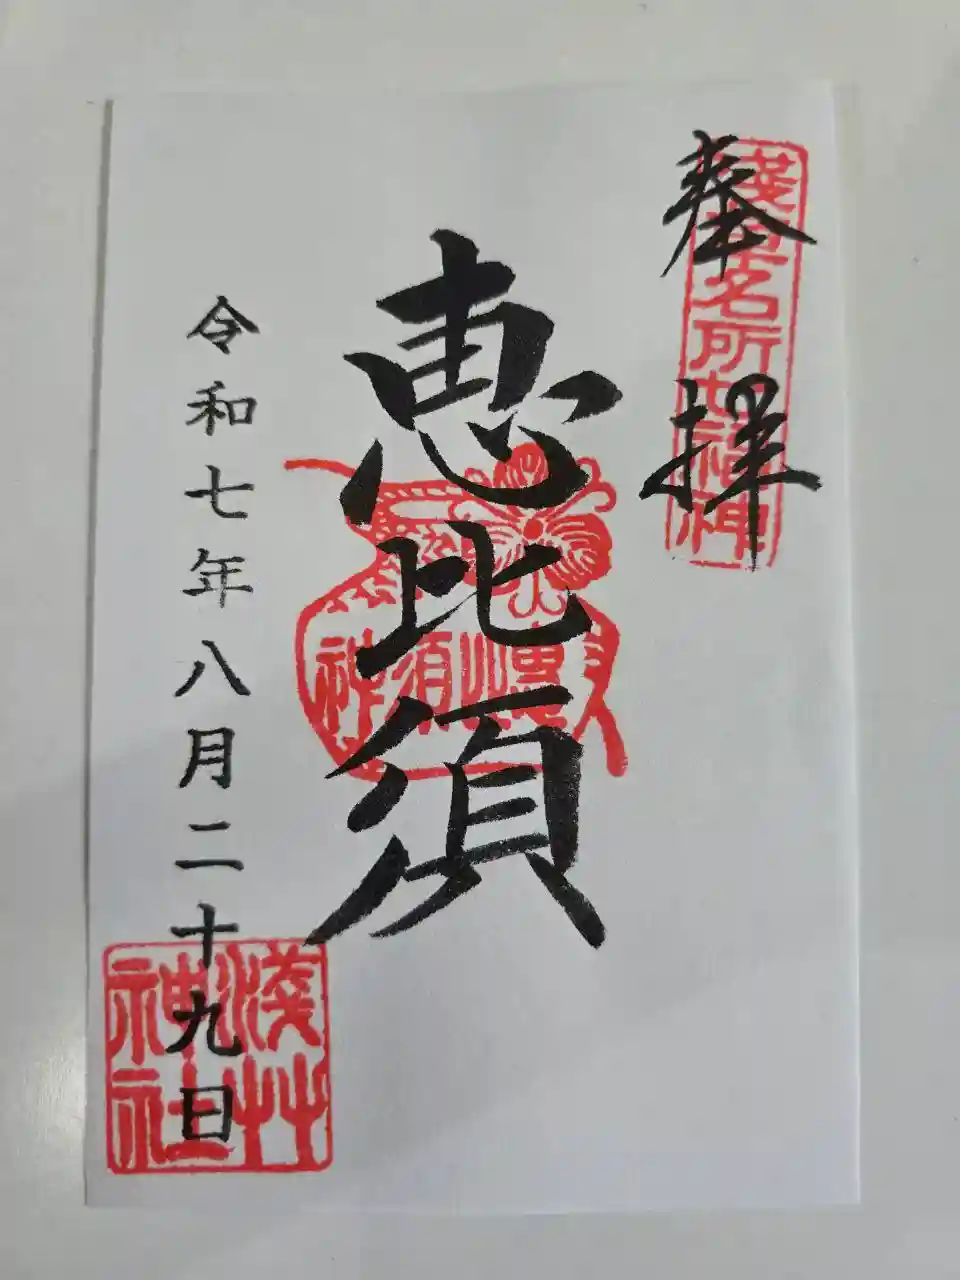 奉拝
浅草名所七福神
恵比須
恵比須神
令和七年八月二十九日
淺艸神社